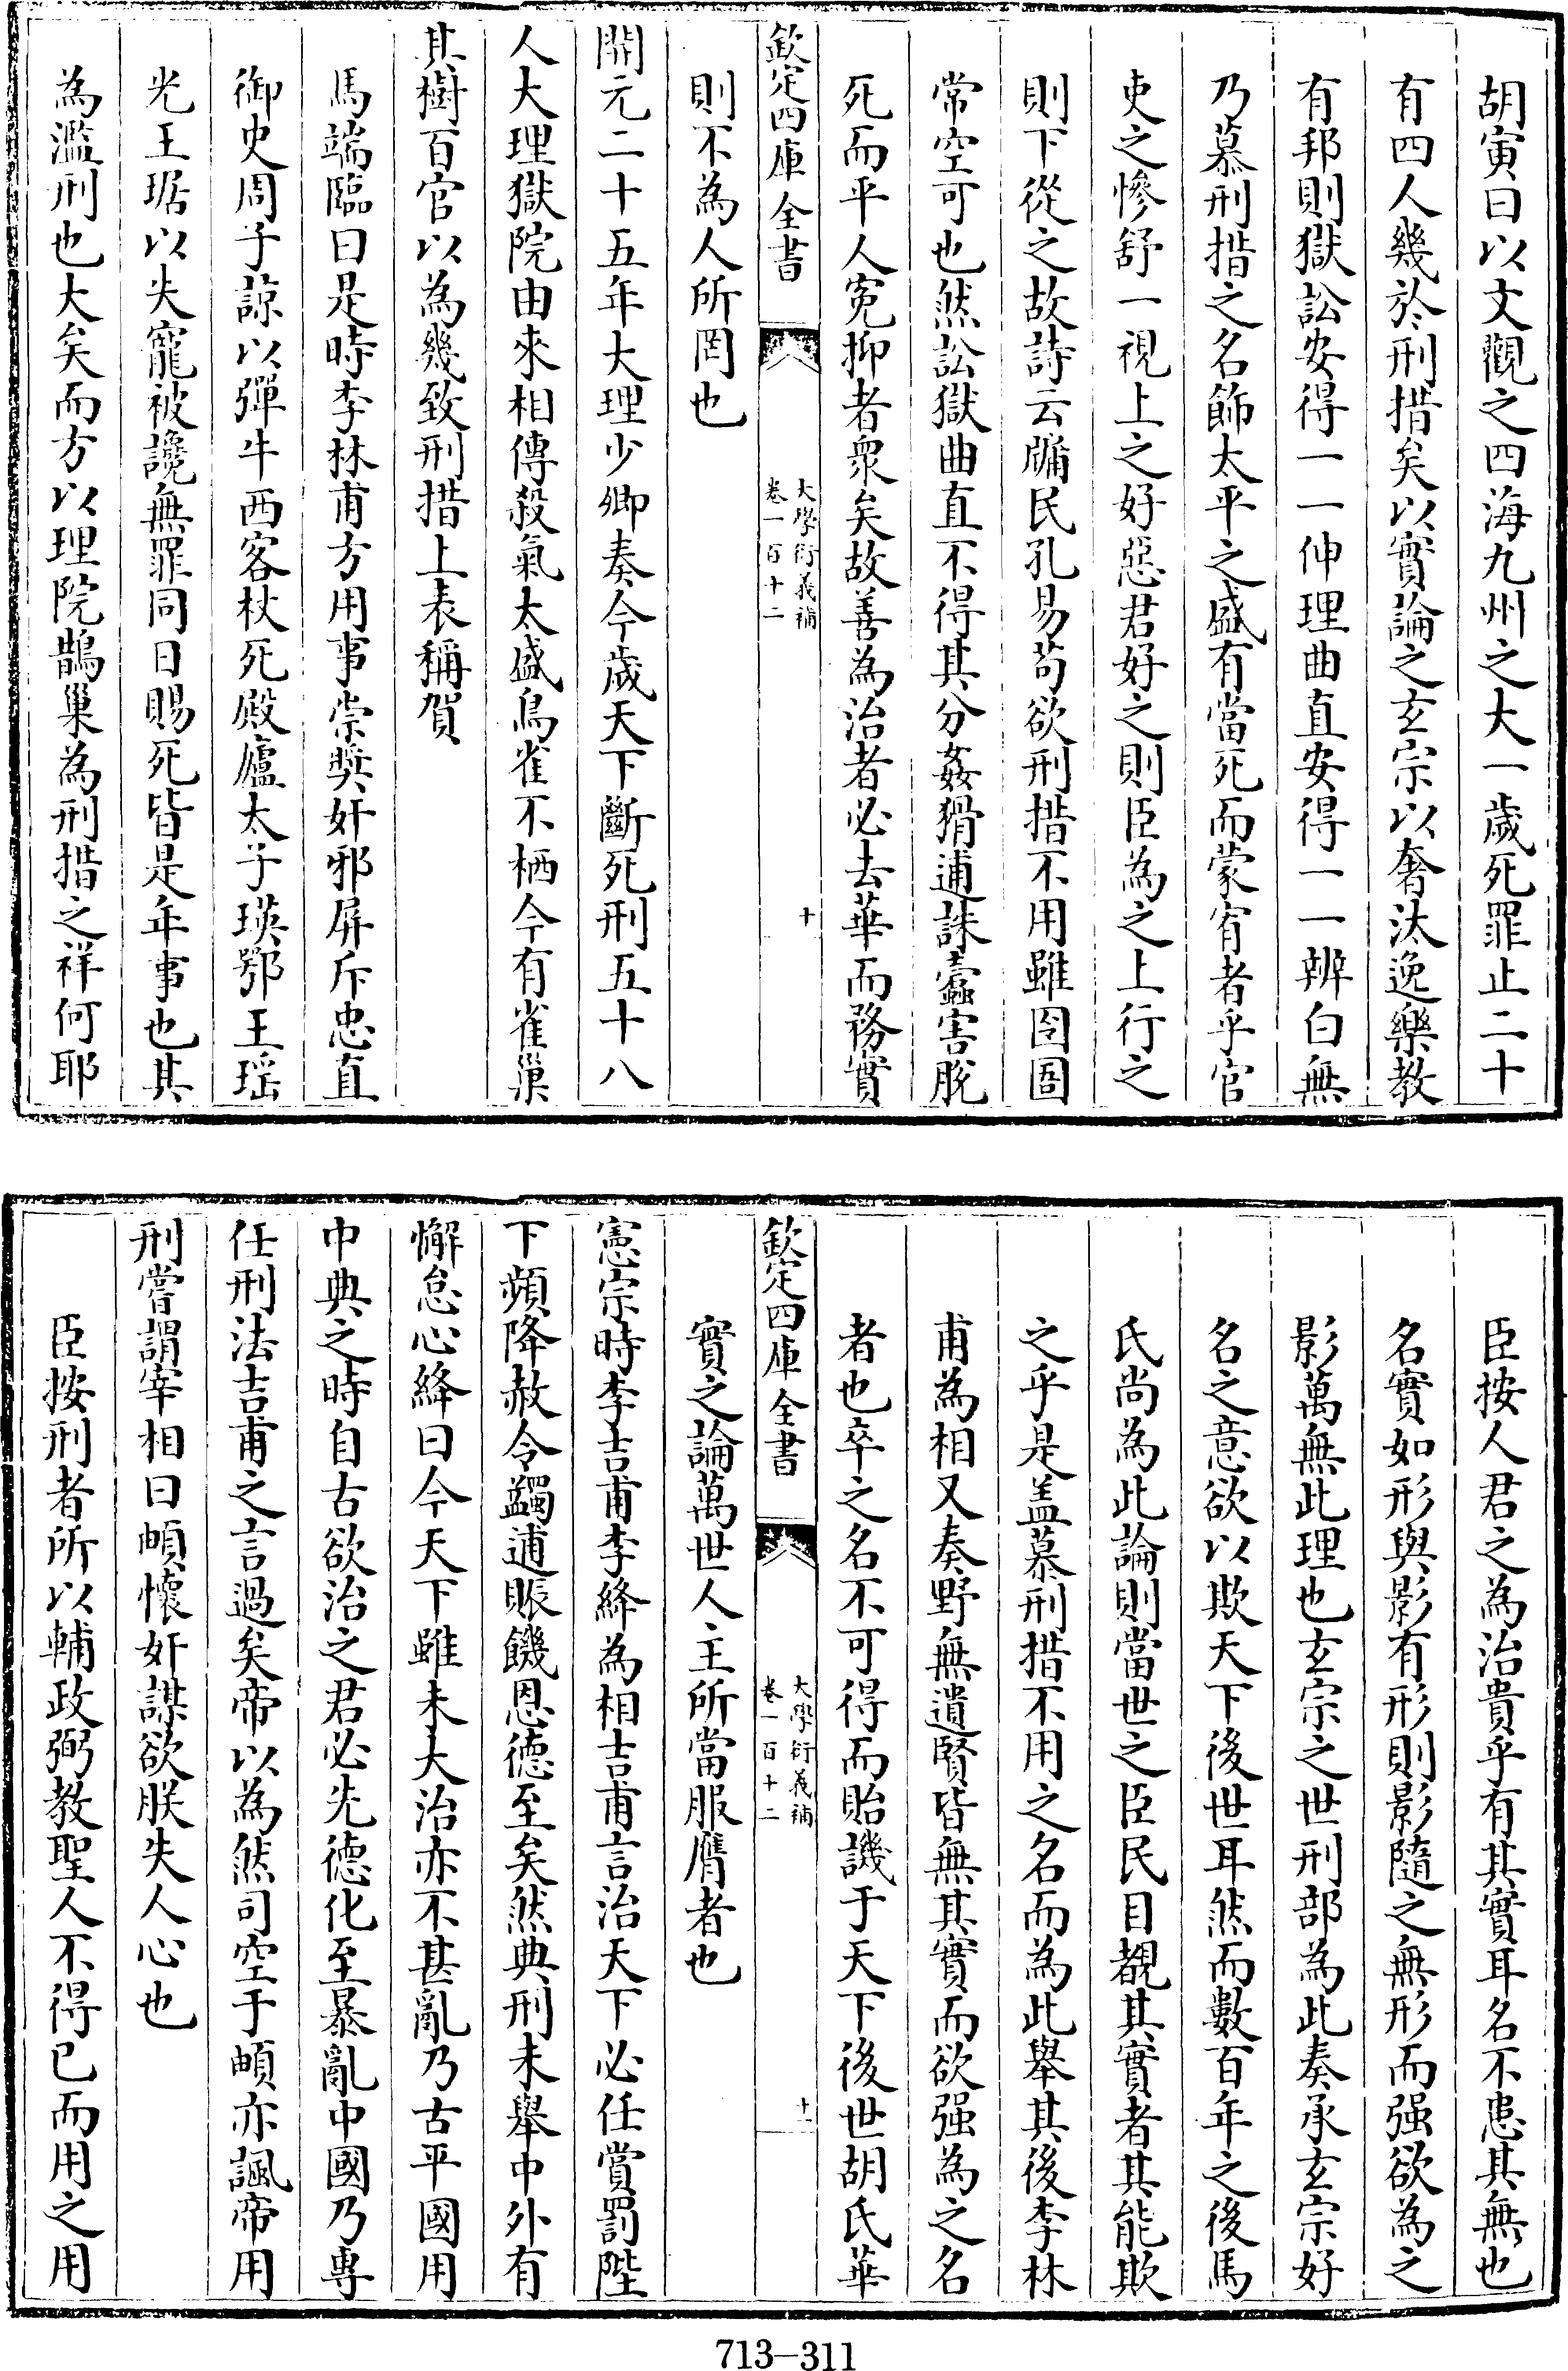 胡寅曰以文觀之四海九州之大一歲死罪止二十
有四人幾於刑措矣以實論之玄宗以奢汰逸樂教
有邦則獄訟安得一一伸理曲直安得一一辨白無
乃慕刑措之名飾太平之盛有當死而蒙宥者乎官
吏之慘舒一視上之好惡君好之則臣為之上行之
則下從之故詩云牖民孔易苟欲刑措不用雖囹圄
常空可也然訟獄曲直不得其分姦猾逋誅蠹害脫
死而平人寃抑者衆矣故善為治者必去華而務實
欽定四庫全書
大學衍義補
卷一百十二
十
則不為人所罔也
開元二十五年大理少卿奏今歲天下斷死刑五十八
人大理獄院由來相傳殺氣太盛鳥雀不栖今有雀巢
其樹百官以為幾致刑措上表稱賀
馬端臨曰是時李林甫方用事崇獎奸邪屏斥忠直
御史周子諒以彈牛西客杖死殿廬太子瑛鄂王瑶
光王琚以失寵被讒無罪同日賜死皆是年事也其
為濫刑也大矣而方以理院鵲巢為刑措之祥何耶
臣按人君之為治貴乎有其實耳名不患其無也
名實如形與影有形則影隨之無形而强欲為之
影萬無此理也玄宗之世刑部為此奏承玄宗好
名之意欲以欺天下後世耳然而數百年之後馬
氏尚為此論則當世之臣民目覩其實者其能欺
之乎是盖慕刑措不用之名而為此舉其後李林
甫為相又奏野無遺賢皆無其實而欲强為之名
者也卒之名不可得而貽譏于天下後世胡氏華
欽定四庫全書
大學衍義補
卷一百十二
十一
實之論萬世人主所當服膺者也
憲宗時李吉甫李絳為相吉甫言治天下必任賞罰陛
下頻降赦令蠲逋賑饑恩德至矣然典刑未舉中外有
懈怠心絳曰今天下雖未大治亦不甚亂乃古平國用
中典之時自古欲治之君必先德化至暴亂中國乃專
任刑法吉甫之言過矣帝以為然司空于頔亦諷帝用
刑嘗謂宰相曰頔懷奸謀欲朕失人心也
臣按刑者所以輔政弼教聖人不得已而用之用
713-311